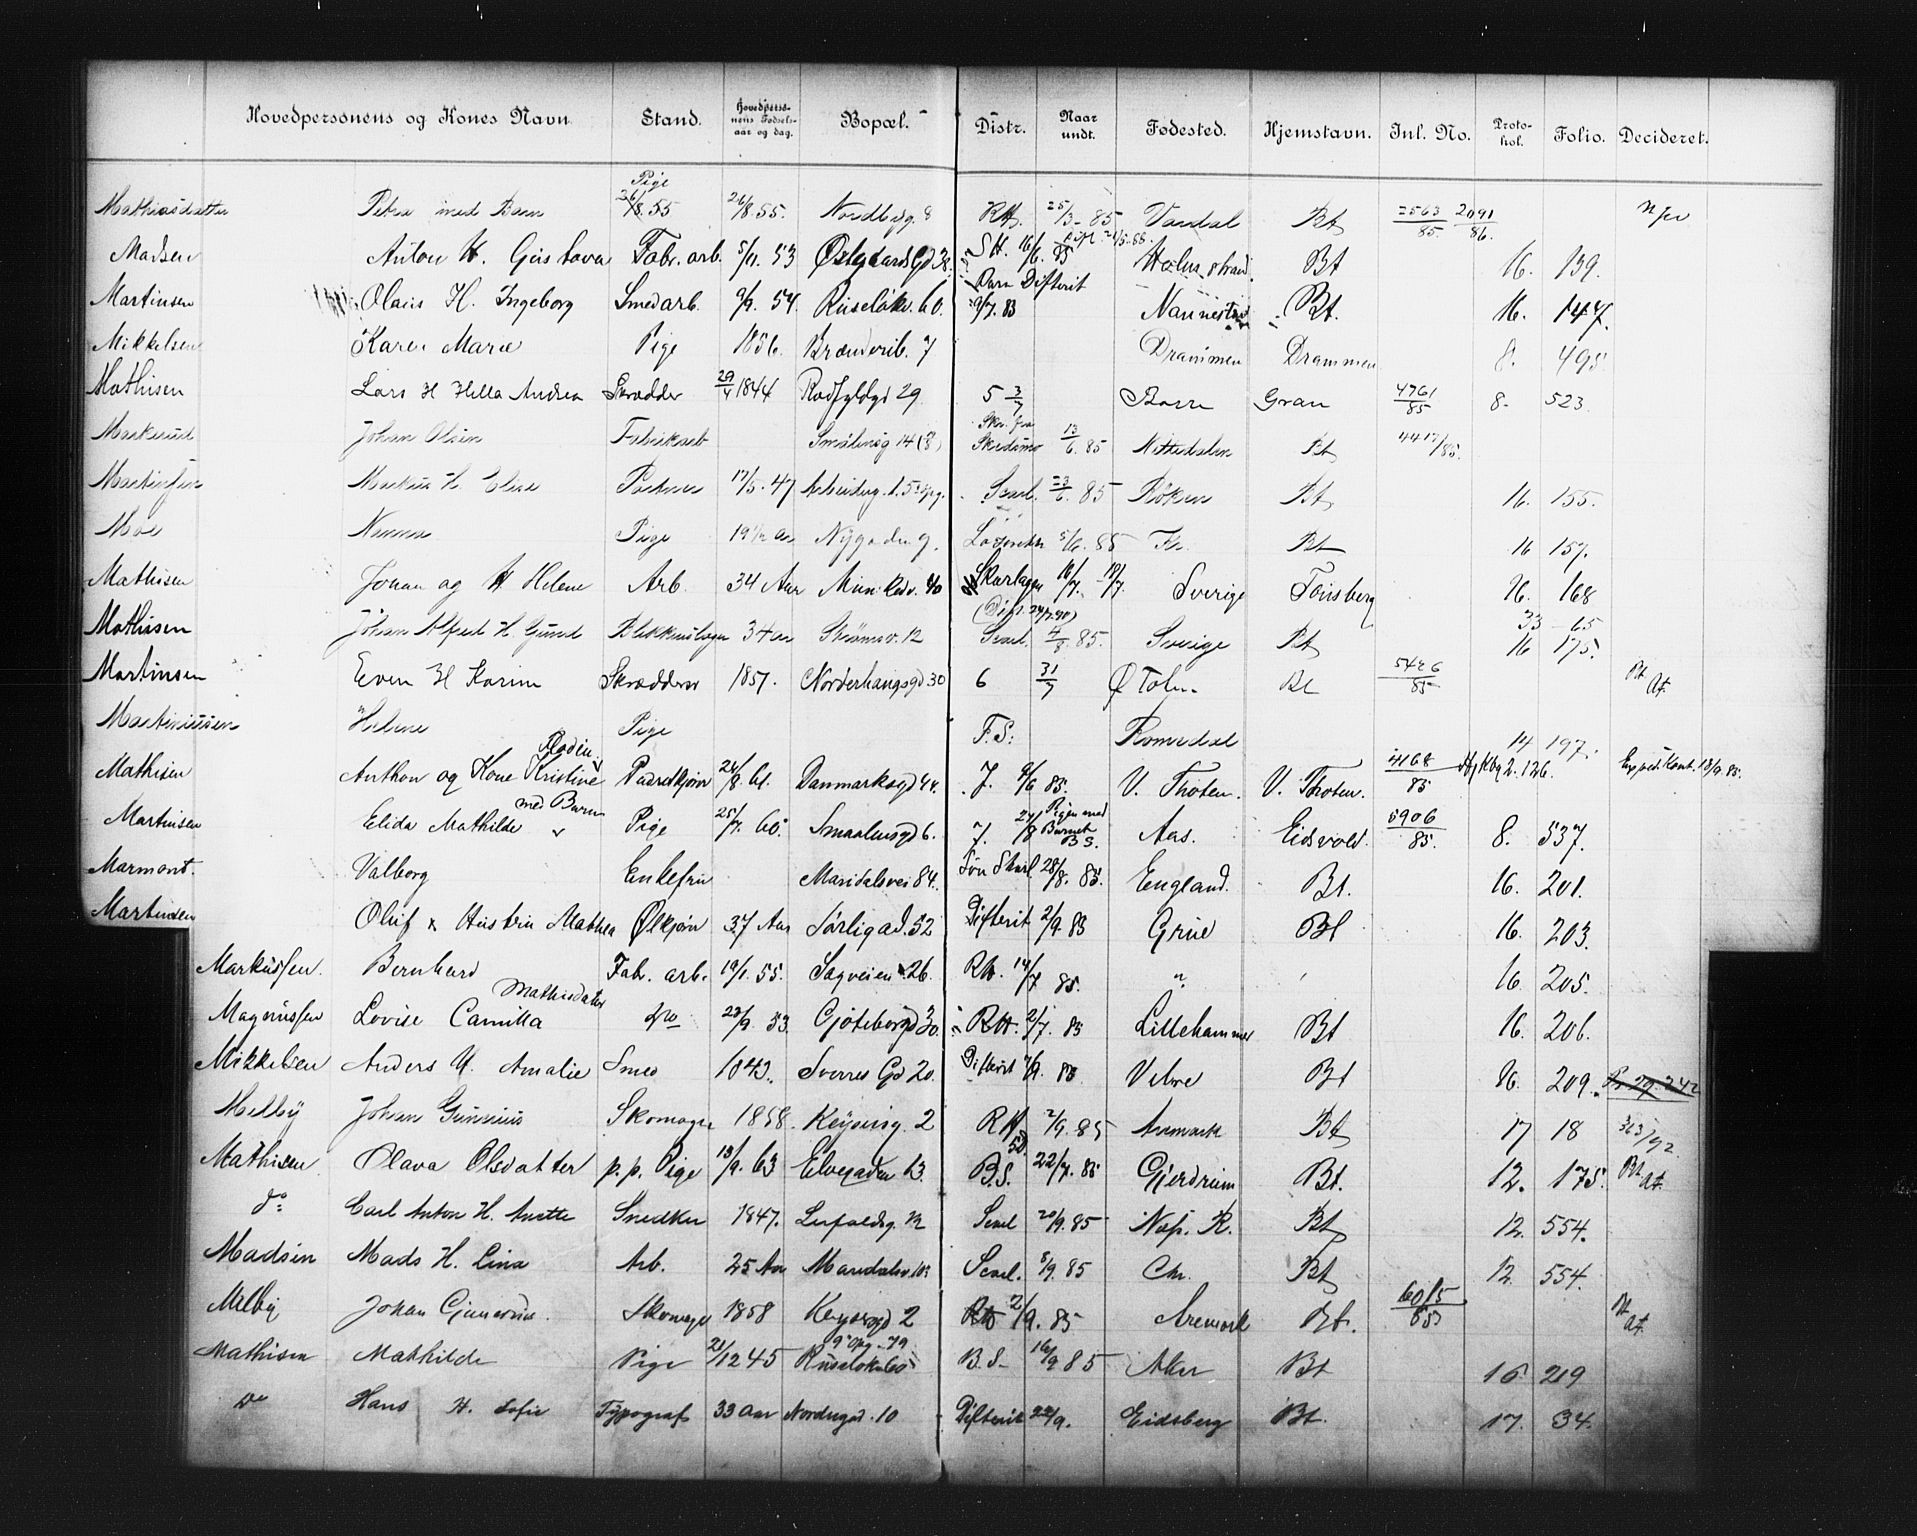 Hovedpersonens og Kones Navn. Stand. Hovedpersonens Fødselsaar og dag. Bopæl. Distr. Naar undt. Fødested. Hjemstavn. Inl. No. Protokol. Folio. Decideret.
Mathiasdatter Petra med Barn Pige 26/8.55 26/8.55. Nordbyg. 8 RH. 25/3-85 Bt 2563/85. 2091/86.
Madsen Anton H. Gustava Fabr. arb. 5/11. 53 Østgaards Gd 38. SH. 16/6. 85 Holmestrand Bt 16. 139.
Martinsen Olaus H. Ingeborg Smedarb. 9/9. 54. Ruseløkv. 60. Barn Difterit 9/7. 83 Nannestad Bt. 16. 147.
Mikkelsen Karen Marie Pige 1856. Brænderib. 7 Drammen Drammen 8. 495.
Mathisen Lars H Hella Andrea Skrædder 29/4 1844 Rødfyldgd 29 5 3/7 Gran 4761/85 8. 523.
Johan Olsen Smålensg 14 13/6. 85 Nittedalen Bt 4417/85.
Martinsen Markus H. Elise 17/5. 47 Arbeiderg. 1. Scarl. 23/6. 85 Røken Bt 16. 155.
Moe Pige 19 1/2 aar Nygaden 9. 5/6. 85 Bt 16 157.
Mathisen Johan og H Helene Arb. 34 Aar Munkedv. 40 Skarlagen 16/7. - 19/7. Sverige Tønsberg 16. 168
Mathisen Johan Alfred H. Gunda Blikkenslager 34 aar Strømsv. 12 Scarl. 4/8. 85. Sverige Bt 33 - 65 16 175.
Martinsen Even H Karine Skrædder 1857. Norderhaugsgd 30 6 31/7 Ø Toten Bt 5426/85 Bt At.
Martiniussen Helene Pige F.S. Romedal 14 197.
Mathisen Anthon og Kone Kristine Pladskjører 24/8. 61. Danmarksgd 44. 7. 9/6 85. V. Thoten. V. Thoten. 4168/85 2. 126. Exped. Kont. 13/9. 85.
Martinsen Elida Mathilde med Barn Pige 25/7. 60. Smaalensgd 6. 7. 24/8 Pigen med Barnet B S. Aas. Eidsvold. 5906/85. 8. 537.
Marmont. Valborg Enkefru Maridalsvei 84. Søn Skarl 28/8. 85. England. Bt. 16. 201.
Martinsen Oluf & Hustru Mathea Ølkjører 37 Aar Sørligad. 52 Difterit 2/9. 85 Grue Bt 16. 203.
Markussen. Bernhard Fabr. arb. 19/1. 55. Sagveien 26. RH. 14/7 85. " 16. 205.
Magnussen Lovise Camilla Mathisdatter Do 23/9. 53. Gøteborgd 30. RH. 2/7. 85 Lillehammer Bt 16. 206.
Mikkelsen Anders H. Amalie Smed 1843. Sverres Gd 20. Difterit 7/9. 85 Bt 16. 209.
Melby Johan Gunerius Skomager 1858. Keysersg. 2 RH 2/9. 85 Aremark Bt 17 18 313/92
Mathisen Olava Olsdatter p.p. Pige 13/9. 63 Elvegaden 13. B.S. 22/7. 85 Gjerdrum Bt. 12. 175. Bt At.
do Carl Anton H. Anette Snedker 1847. Scarl 20/9. 85 Næs. R. Bt 12. 554.
Madsen Mads H. Lina Arb. 25 Aar Maridalsv. 103 Scarl. 8/9. 85 Chr. Bt 12. 554.
Melby Johan Gunerius Skomager 1858 Keysersgd 2 RH 2/9. 85 Aremark Bt. 6015/85 Bt At.
Mathisen Mathilde Pige 21/12 45 Ruseløkv 60 B.S. 16/9 85 Aker Bt 16 219
Do Hans H. Sofie Typograf 33 aar Nordregd. 10 Difterit 22/9. Eidsberg Bt. 17. 34.